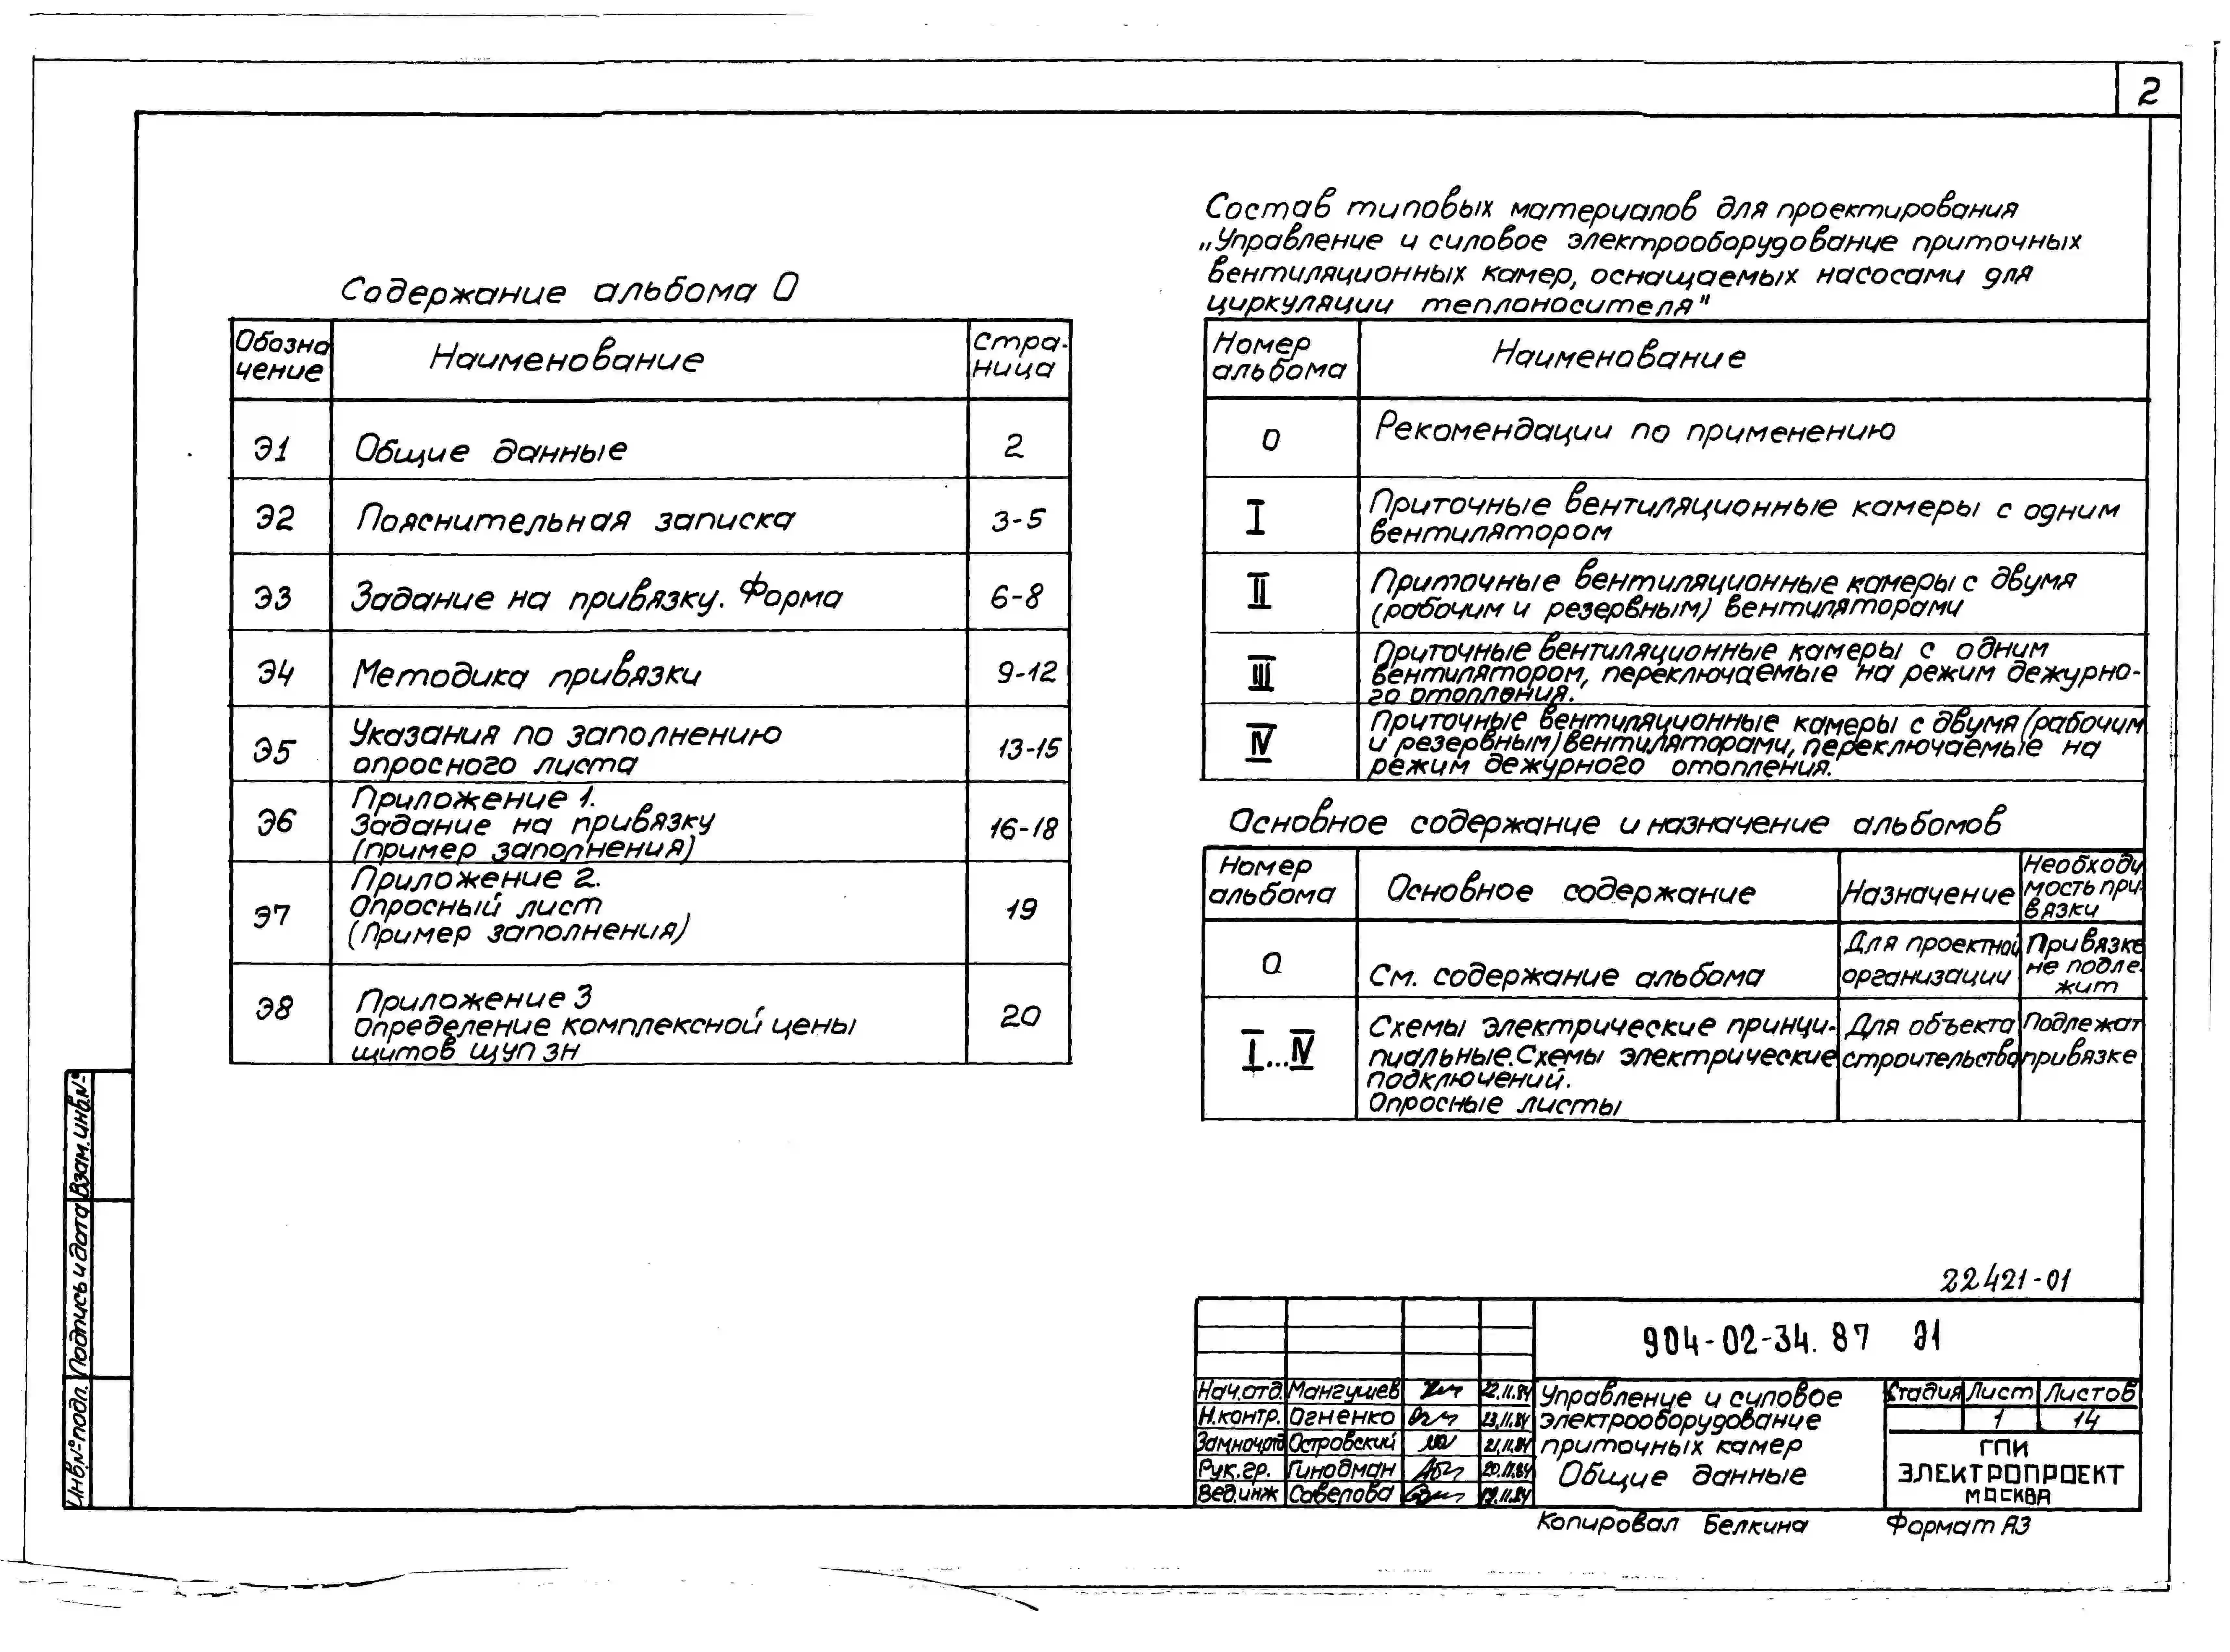 2
Содержание альбома 0
Обозна
чение
Наименование
Стра-
ница
Э1
Общие данные
2
Э2
Пояснительная записка
3-5
Э3
Задание на привязку. Форма
6-8
Э4
Методика привязки
9-12
Э5
Указания по заполнению
опросного листа
13-15
Э6
Приложение 1.
Задание на привязку
(пример заполнения)
16-18
Э7
Приложение 2.
Опросный лист
(Пример заполнения)
19
Э8
Приложение 3
Определение комплексной цены
щитов ЩУПЗН
20
Состав типовых материалов для проектирования
„Управление и силовое электрооборудование приточных
вентиляционных камер, оснащаемых насосами для
циркуляции теплоносителя"
Номер
альбома
Наименование
0
Рекомендации по применению
I
Приточные вентиляционные камеры с одним
вентилятором
II
Приточные вентиляционные камеры с двумя
(рабочим и резервным) вентиляторами
III
Приточные вентиляционные камеры с одним
вентилятором, переключаемые на режим дежурно-
го отопления.
IV
Приточные вентиляционные камеры с двумя (рабочим
и резервным) вентиляторами, переключаемые на
режим дежурного отопления.
Основное содержание и назначение альбомов
Номер
альбома
Основное содержание
Назначение
Необходи
мость при-
вязки
0
См. содержание альбома
Для проектной
организации
Привязке
не подле-
жит
I...IV
Схемы электрические принци-
пиальные. Схемы электрические
подключений.
Опросные листы
Для объекта
строительства
Подлежат
привязке
Взам. инв. №
Подпись и дата
Инв. № подл.
22421-01
904-02-34.87 Э1
Нач.отд. Мангушев 22.11.84
Н.контр. Огненко 23.11.84
Зам.нач.отд Островский 21.11.84
Рук.гр. Гинодман 20.11.84
Вед.инж Савелова 19.11.84
Управление и силовое
электрооборудование
приточных камер
Общие данные
Стадия Лист Листов
1 14
ГПИ
ЭЛЕКТРОПРОЕКТ
МОСКВА
Копировал Белкина
Формат А3